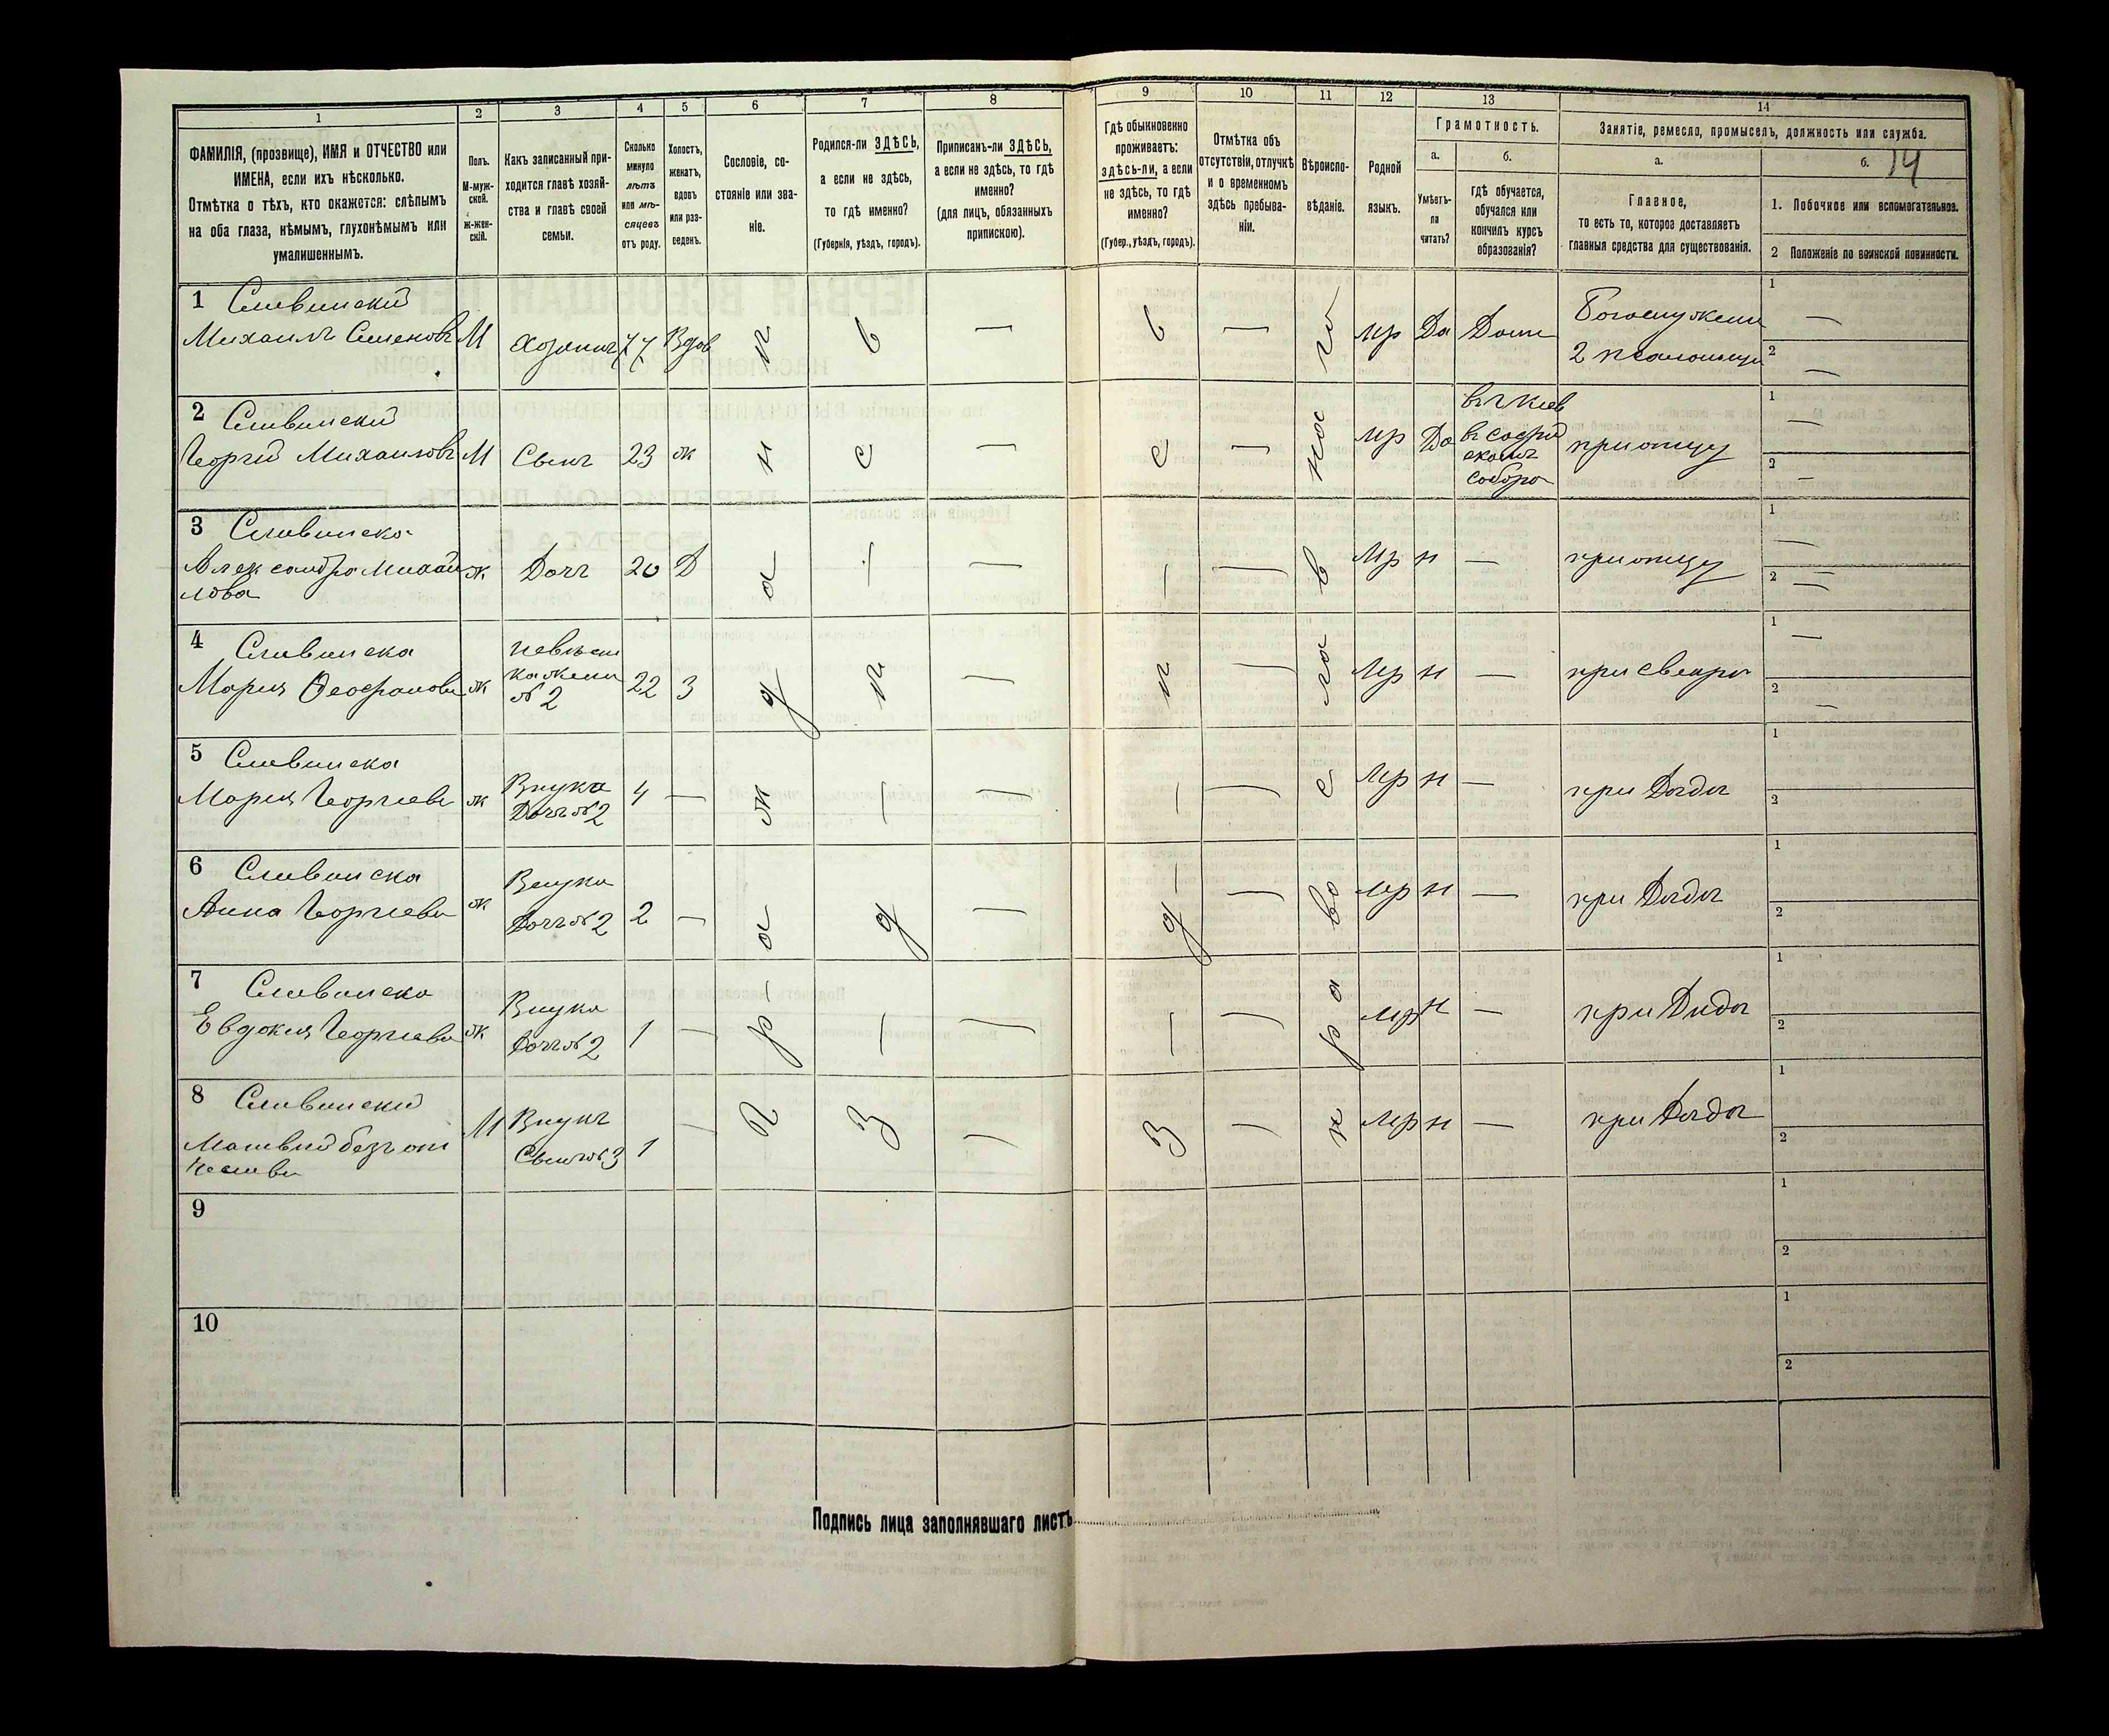 1
2
3
4
5
6
7
8
9
10
11
12
13
14
ФАМИЛІЯ, (прозвище), ИМЯ и ОТЧЕСТВО или
ИМЕНА, если ихъ нѣсколько.
Отмѣтка о тѣхъ, кто окажется: слѣпымъ
на оба глаза, нѣмымъ, глухонѣмымъ или
умалишеннымъ.
Полъ.
М-муж-
ской.
ж-жен-
скій.
Какъ записанный при-
ходится главѣ хозяй-
ства и главѣ своей
семьи.
Сколько
минуло
лѣтъ
или мѣ-
сяцевъ
отъ роду.
Холостъ,
женатъ,
вдовъ
или раз-
веденъ.
Сословіе, со-
стояніе или зва-
ніе.
Родился-ли ЗДѢСЬ,
а если не здѣсь,
то гдѣ именно?
(Губернія, уѣздъ, городъ).
Приписанъ-ли ЗДѢСЬ,
а если не здѣсь, то гдѣ
именно?
(для лицъ, обязанныхъ
припискою).
Гдѣ обыкновенно
проживаетъ:
здѣсь-ли, а если
не здѣсь, то гдѣ
именно?
(Губер., уѣздъ, городъ).
Отмѣтка объ
отсутствіи, отлучкѣ
и о временномъ
здѣсь пребыва-
ніи.
Вѣроиспо-
вѣданіе.
Родной
языкъ.
Грамотность.
а.
Умѣетъ-
ли
читать?
б.
гдѣ обучается,
обучался или
кончилъ курсъ
образованія?
Занятіе, ремесло, промыселъ, должность или служба.
а.
Главное,
то есть то, которое доставляетъ
главныя средства для существованія.
б. 14
1. Побочное или вспомогательное.
2 Положеніе по воинской повинности.
1 Сливинскій
Михаилъ Семеновъ М Хозяинъ 77 Вдов — — мр Да Дома
2 псаломщи
2 Сливинскій
Георгій Михаиловъ М Сынъ 23 ж — — мр Да
въ г Кіев
въ Софій
скомъ
собора
при отцу
3 Сливинска
Александра Михаи
лова
ж Дочь 20 Д — — мр н — при отцу
4 Сливинска
Мария Феофанова ж
невѣст
ка жена
№ 2
22 3 — — мр н — при свекра
5 Сливинска
Мария Георгіева ж
Внука
Дочь №2
4 — — — мр н — при Дѣда
6 Сливинска
Анна Георгіева ж
Внука
Дочь №2
2 — — — мр н — при Дѣда
7 Сливинска
Евдокия Георгіева ж
Внука
Дочь №2
1 — — — мр н — при Дида
8 Сливинскій
Матвій безъ от
чества
М
Внукъ
Сынъ №3
1 — — — мр н — при Дѣда
9
10
Подпись лица заполнявшаго листъ